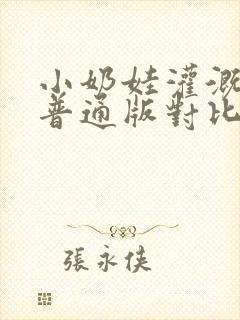 小奶娃灌溉
普通版對比
張永俠